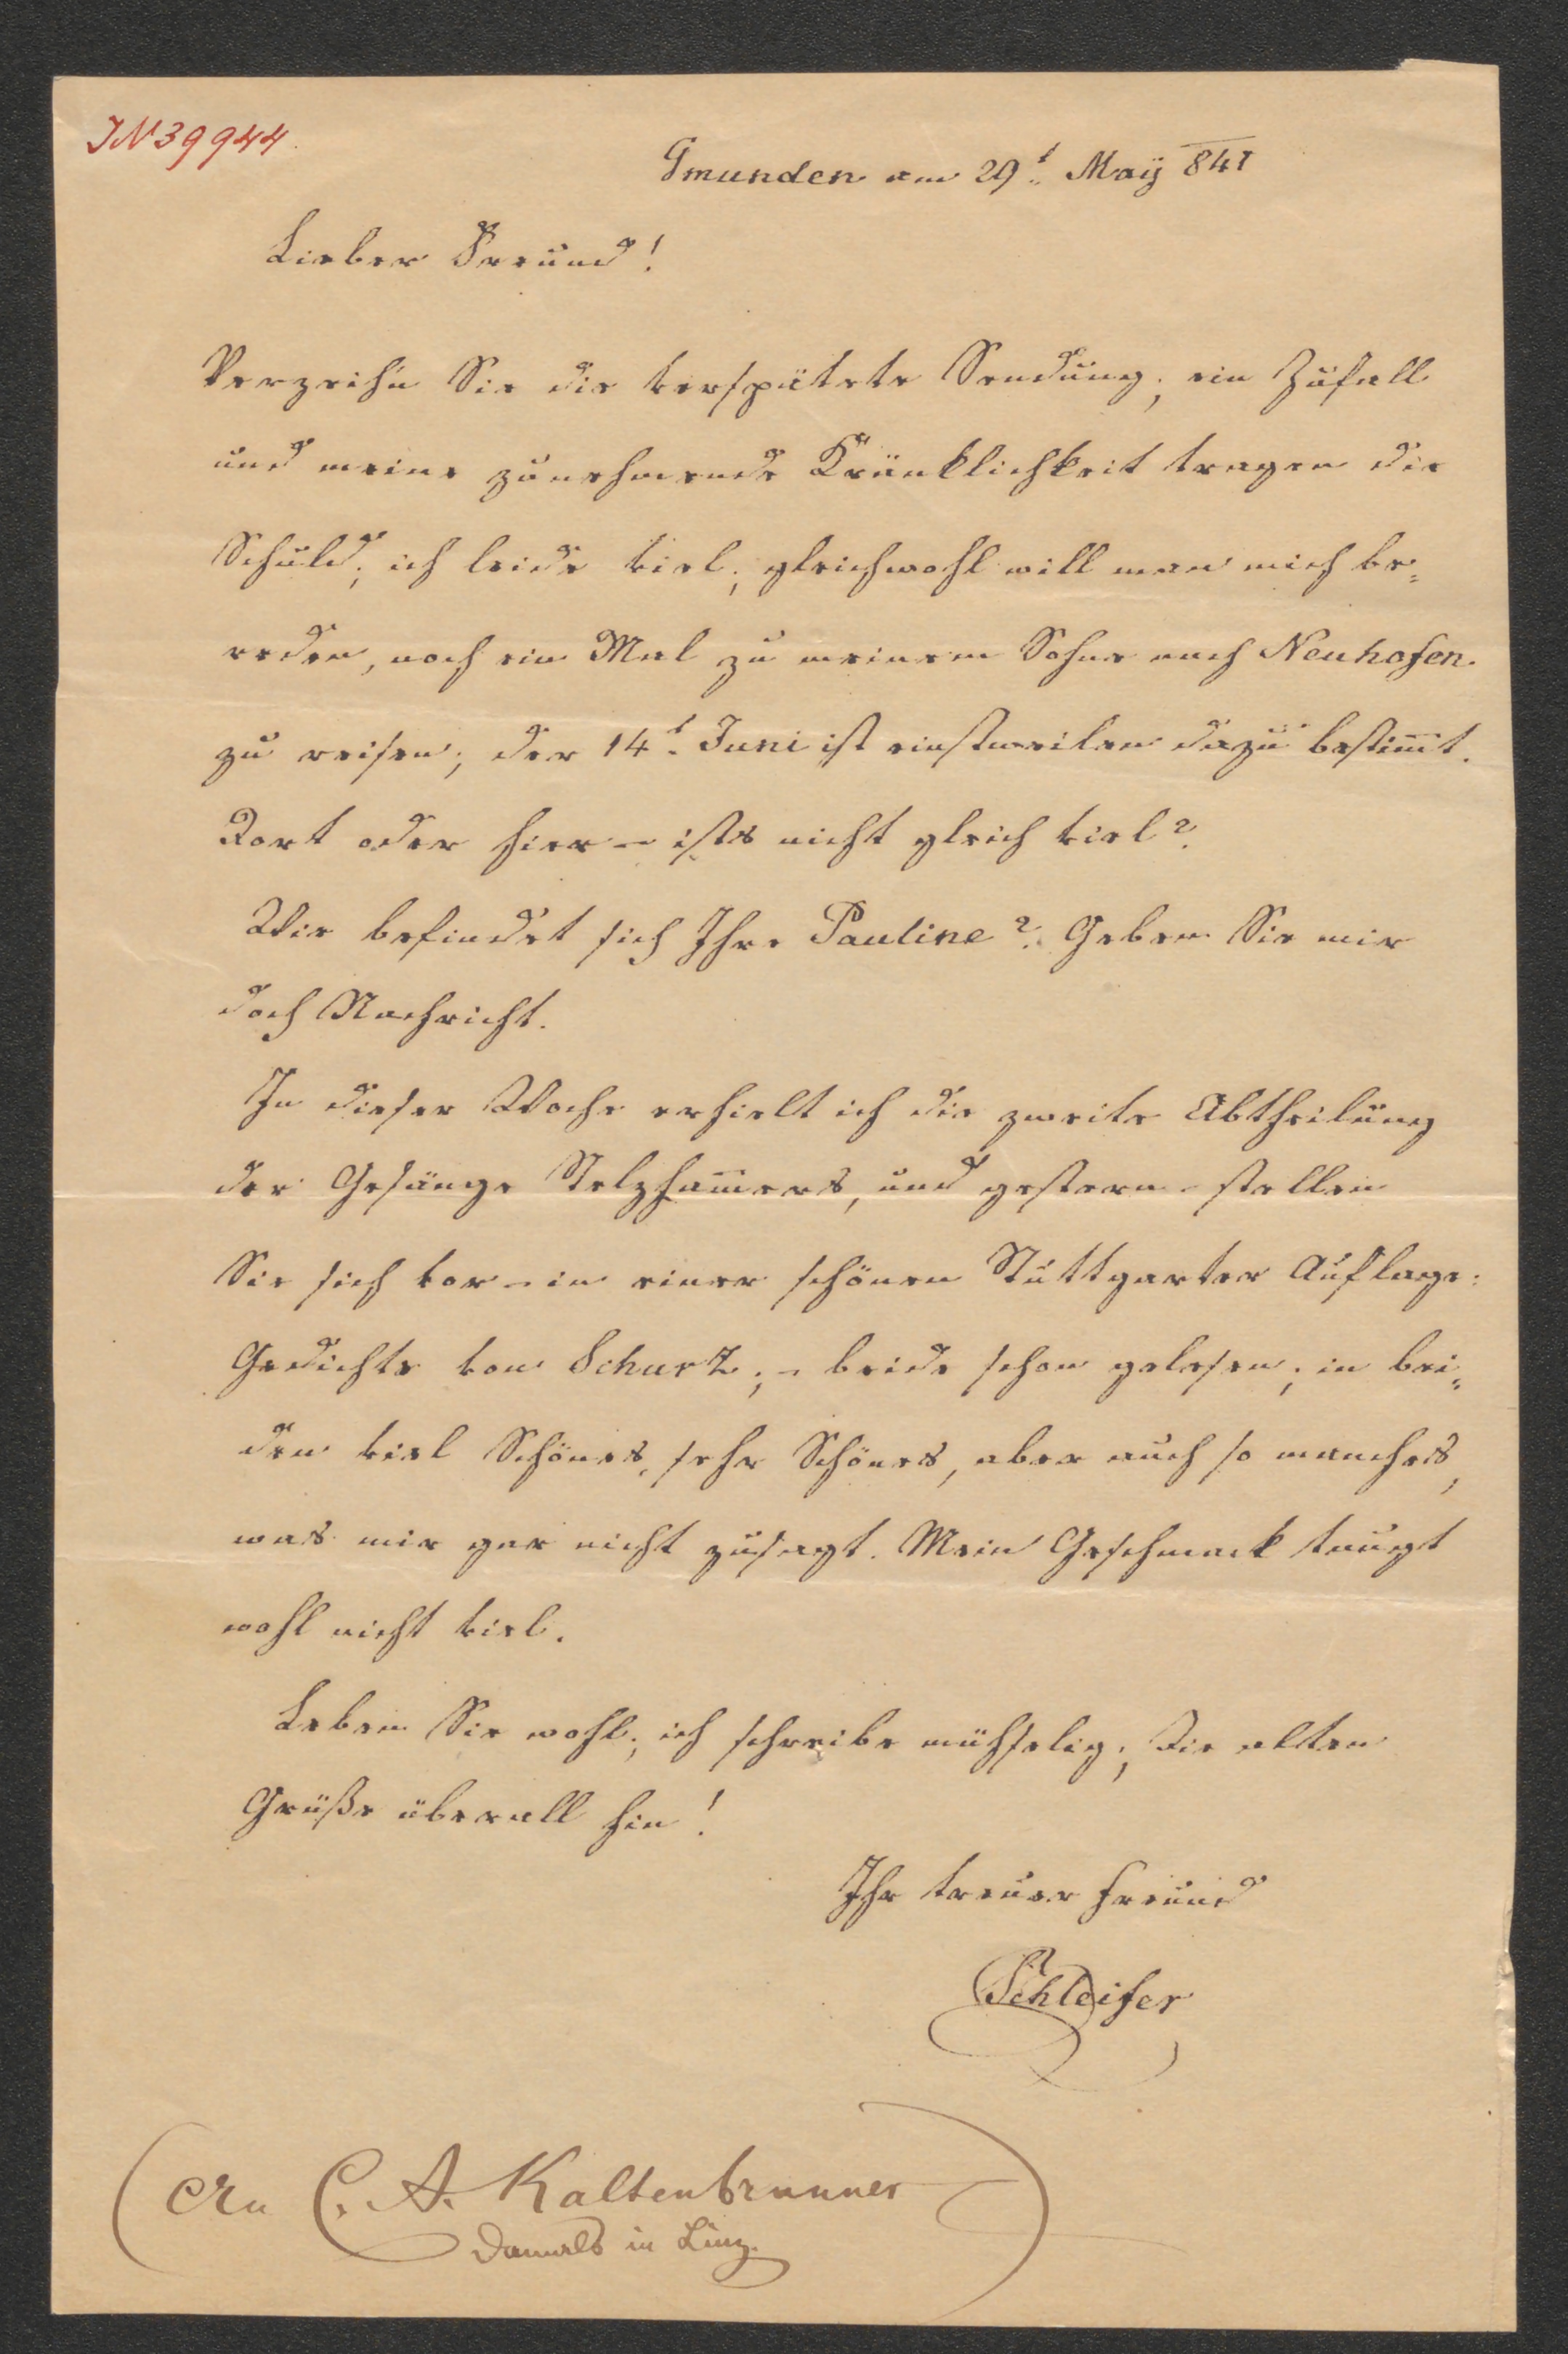 IN 39944.
Gmunden am 29t. Maÿ 841
Lieber Freund!
Verzeih'n Sie die verspätete Sendung; ein Zufall
und meine zunehmende Kränklichkeit tragen die
Schuld; ich leide viel; gleichwohl will man mich be„
reden, noch ein Mal zu meinem Sohne nach Neuhofen
zu reisen; der 14t. Juni ist einstweilen dazu bestim̅t.
Dort oder hier – ists nicht gleich viel?
Wie befindet sich Ihre Pauline? Geben Sie mir
doch Nachricht.
In dieser Woche erhielt ich die zweite Abtheilung
der Gesänge Stelzham̅ers, und gestern – stellen
Sie sich vor – in einer schönen Stuttgarter Auflage:
Gedichte von Schurz; – beide schon gelesen; in bei„
den viel Schönes, sehr Schönes, aber auch so manches,
was mir gar nicht zusagt. Mein Geschmack taugt
wohl nicht viel.
Leben Sie wohl; ich schreibe mühselig; die alten
Grüße überall hin!
Ihr treuer Freund
Schleifer
(An C. A. Kaltenbrunner
damals in Linz.)